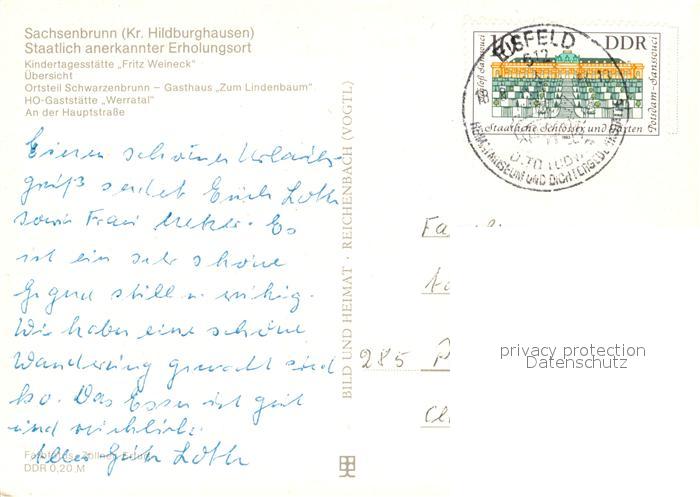 Sachsenbrunn (Kr. Hildburghausen)
Staatlich anerkannter Erholungsort
Kindertagesstätte „Fritz Weineck"
Übersicht
Ortsteil Schwarzenbrunn – Gasthaus „Zum Lindenbaum"
HO-Gaststätte „Werratal"
An der Hauptstraße
Einen schönen Urlaubs-
gruß sendet Euch Loth
sowie Frau. Es
ist ein sehr schöne
Gegend still u. ruhig.
Wir haben eine schöne
Wanderung gemacht sind
ko. Das Essen ist gut
und reichlich.
Alles Gute Loth
DDR 0,20 M
BILD UND HEIMAT · REICHENBACH (VOGTL)
EISFELD
DDR
Schloß Sanssouci
Potsdam-Sanssouci
Staatliche Schlösser und Gärten
OTTO LUDWIG
HEIMATMUSEUM UND DICHTERGEDENKSTÄTTE
Fa
285 P
privacy protection
Datenschutz